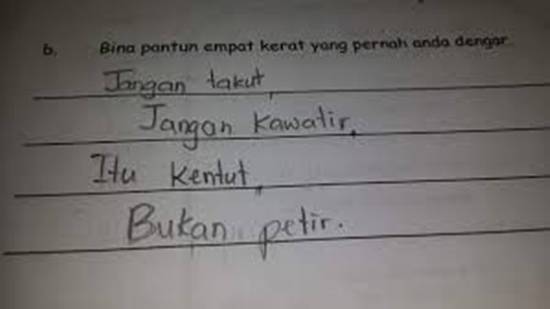 b. Bina pantun empat kerat yang pernah anda dengar.
Jangan takut,
Jangan Kawatir,
Itu Kentut,
Bukan petir.